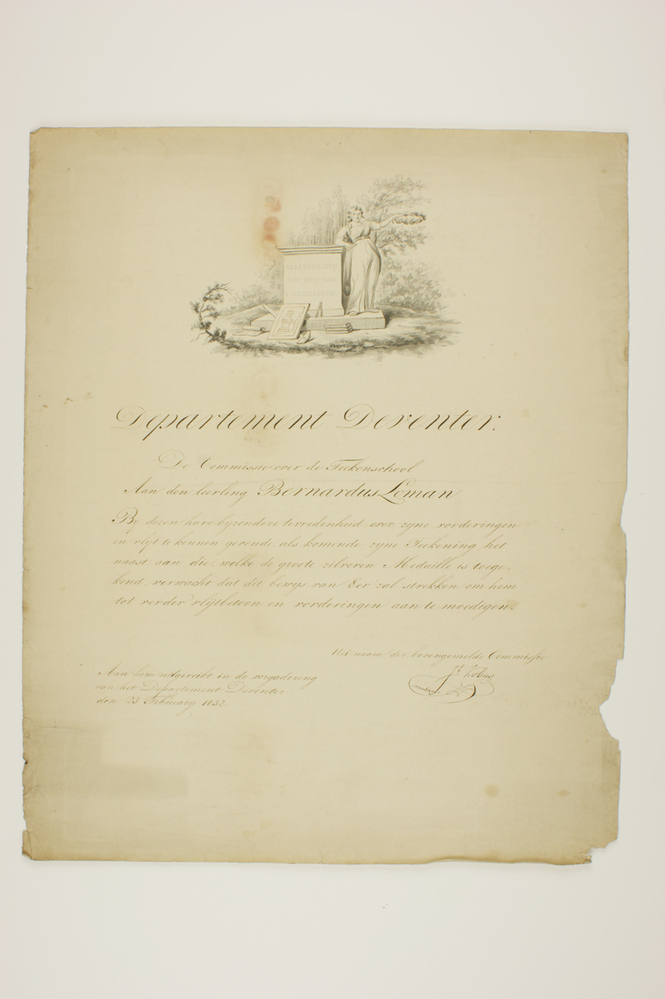 Departement Deventer.
De Commissie over de Teekenschool
Aan den leerling Bernardus Leman
By dezen hare byzondere tevredenheid over zyne vorderingen
en vlyt te kennen gevende, als komende zyne Teekening het
naast aan die, welke de groote zilveren Medaille is toege-
kend, verwacht dat dit bewys van Eer zal strekken om hem
tot verder vlytbetoon en vorderingen aan te moedigen.
Uit naam der bovengemelde Commissie
Aan hem uitgereikt in de vergadering
van het Departement Deventer
den 23 February 1832.